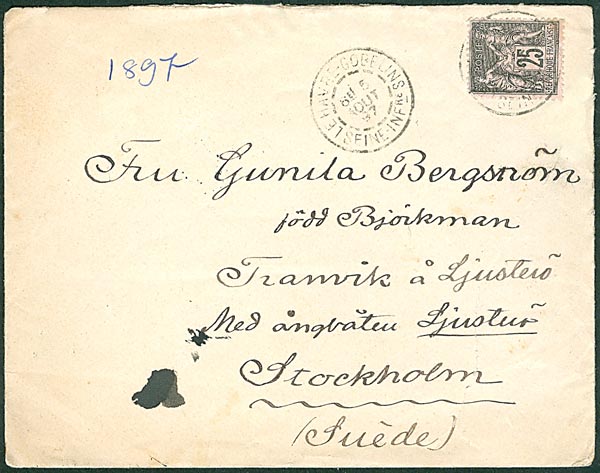 1897
LE HAVRE-GOBELINS
5
AOUT
97
SEINE-INFRE
25
RÉPUBLIQUE FRANÇAISE
Fru Gunila Bergström
född Björkman
Tranvik å Ljusterö
Med ångbåten Ljusterö
Stockholm
(Suède)